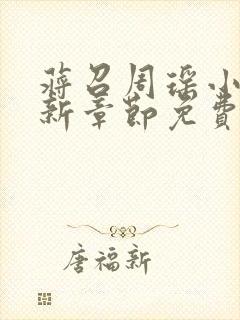 蒋召周瑶小
新章節免費
唐福新